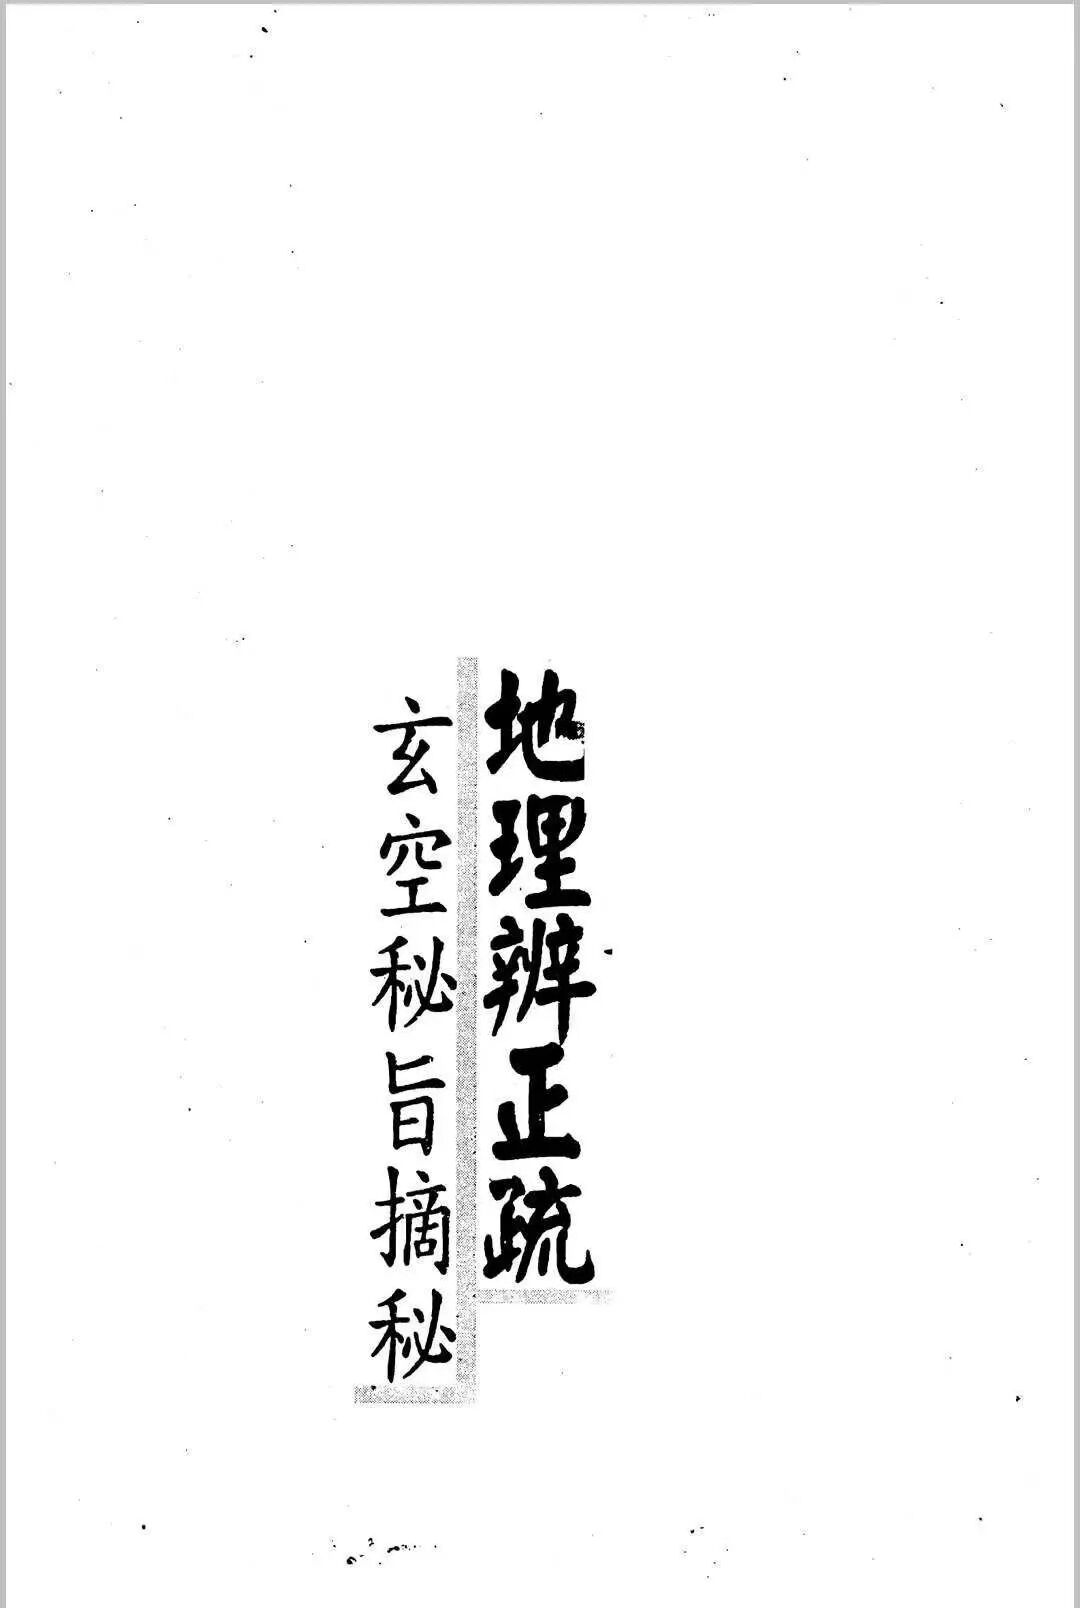 地理辨正疏
玄空秘旨摘秘